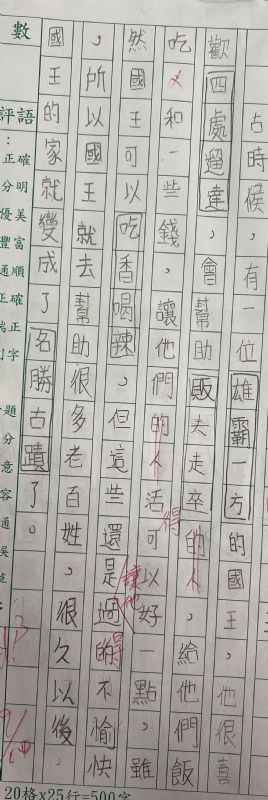 古時候,有一位雄霸一方的國王,他很喜
歡四處遊達,會幫助販夫走卒的人,給他們飯
吃和一些錢,讓他們的人活可以好一點,雖
然國王可以吃香喝辣,但這些還是過得不愉快
,所以國王就去幫助很多老百姓,很久以後,
國王的家就變成了名勝古蹟了。
數
評語
:
正確
分明
優美
豐富
通順
正確
端正
題
分
意
容
通
20格x25行=500字